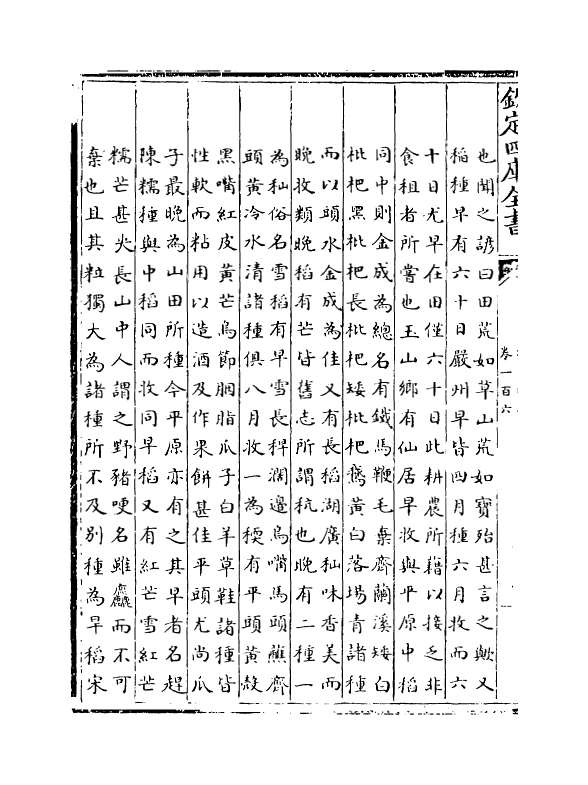 欽定四庫全書
卷一百六
也聞之諺曰田荒如草山荒如寶殆甚言之歟又
稻種早有六十日嚴州早皆四月種六月收而六
十日尤早在田僅六十日此耕農所藉以接乏非
食租者所嘗也玉山鄉有仙居早收與平原中稻
同中則金成為總名有鐵馬鞭毛棗齊蘭溪矮白
枇杷黑枇杷長枇杷矮枇杷鵞黃白落塲青諸種
而以頭水金成為佳又有長稻湖廣秈味香美而
晚收類晚稻有芒皆舊志所謂秔也晚有二種一
為秈俗名雪稻有早雪長稈瀾邊烏嘴馬頭蘸齊
頭黃冷水清諸種俱八月收一為稬有平頭黃殼
黑嘴紅皮黃芒烏節胭脂瓜子白羊草鞋諸種皆
性軟而粘用以造酒及作果餅甚佳平頭尤尚瓜
子最晚為山田所種今平原亦有之其早者名趕
陳糯種與中稻同而收同早稻又有紅芒雪紅芒
糯芒甚火長山中人謂之野豬哽名雖麤而不可
棄也且其粒獨大為諸種所不及别種為旱稻宋